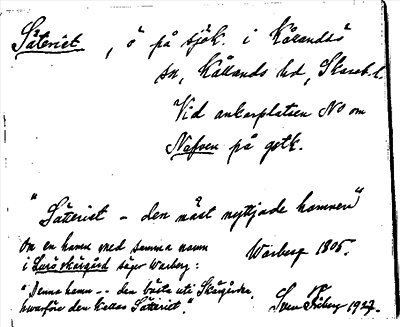 Säteriet, ö på sjök. i Kållandsö
sn, Kållands hd, Skarab. l.
Vid ankarplatsen NO om
Nafven på gstk.
"Säteriet – den mäst nyttjade hamnen"
Warberg 1805.
Om en hamn med samma namn
i Lurö skärgård säger Warberg:
"Denna hamn -- den bästa uti Skärgården
hwarföre den kallas Säteriet."
1927.